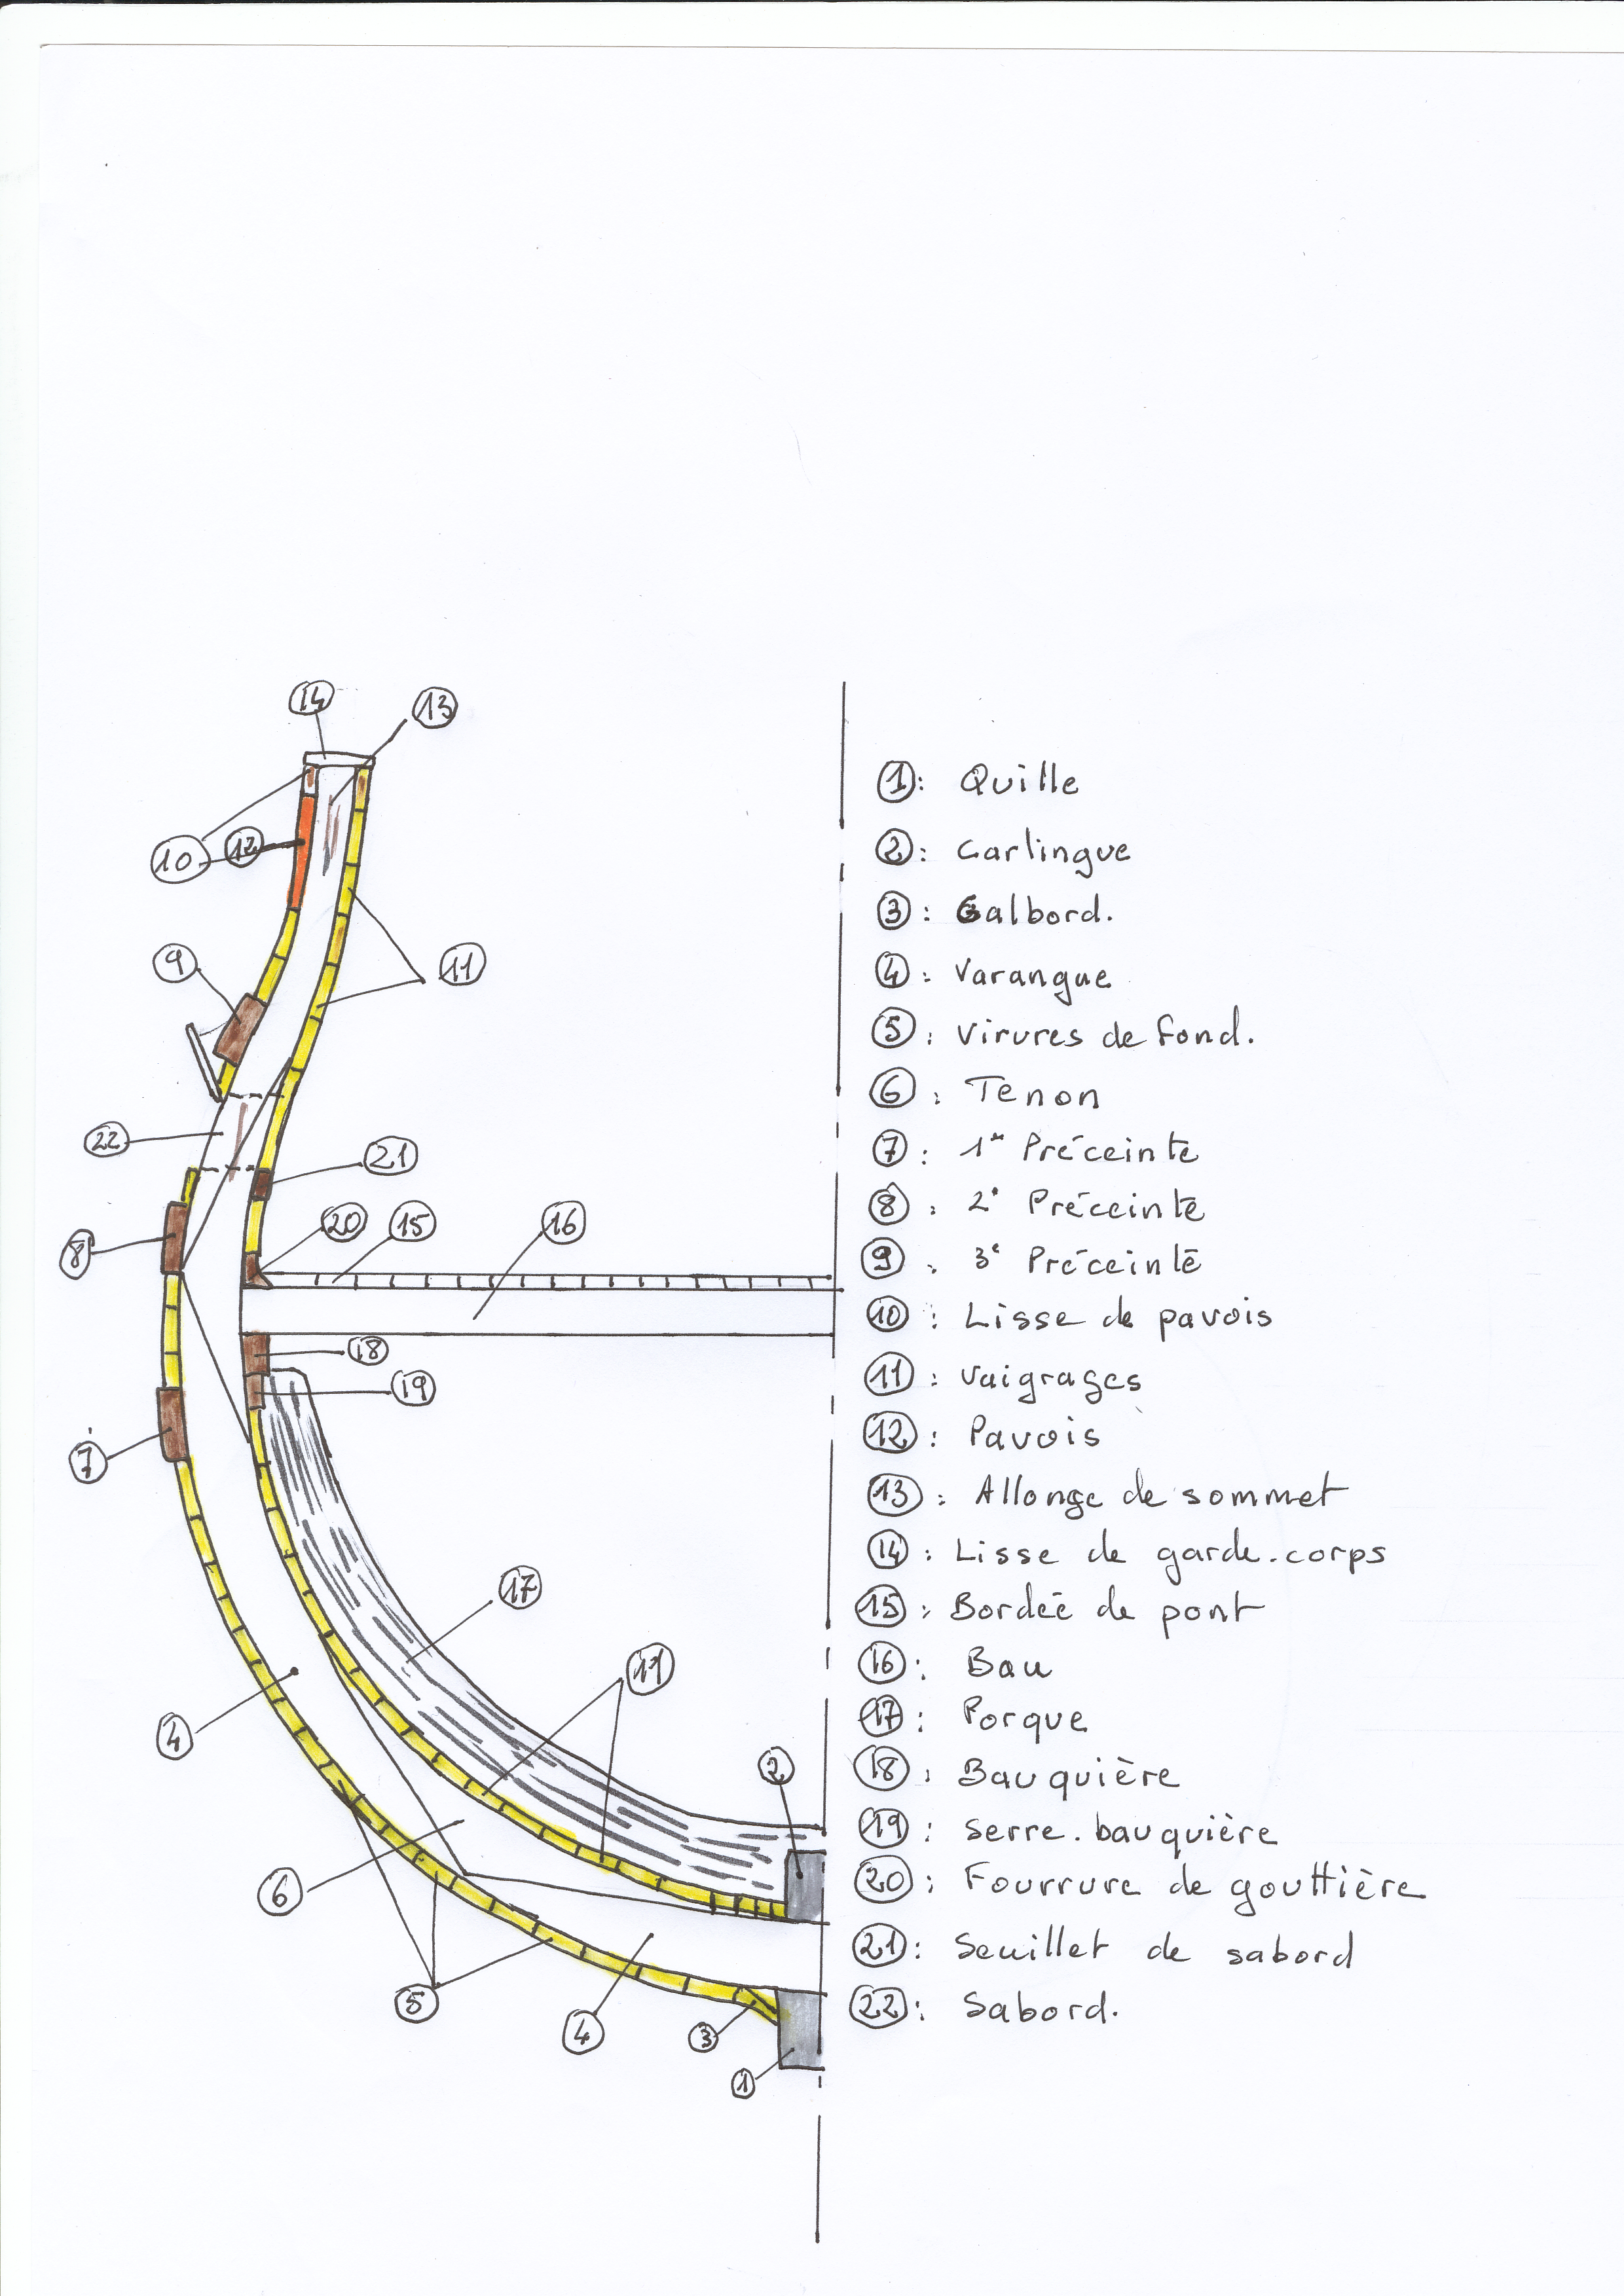 14
13
10
12
9
11
22
21
20
15
16
8
18
19
7
17
11
4
2
6
5
4
3
1
1: Quille
2: Carlingue
3: Galbord.
4: Varangue
5: Virures de fond.
6: Tenon
7: 1re Préceinte
8: 2e Préceinte
9: 3e Préceinte
10: Lisse de pavois
11: Vaigrages
12: Pavois
13: Allonge de sommet
14: Lisse de garde.corps
15: Bordée de pont
16: Bau
17: Porque
18: Bauquière
19: Serre.bauquière
20: Fourrure de gouttière
21: Seuillet de sabord
22: Sabord.